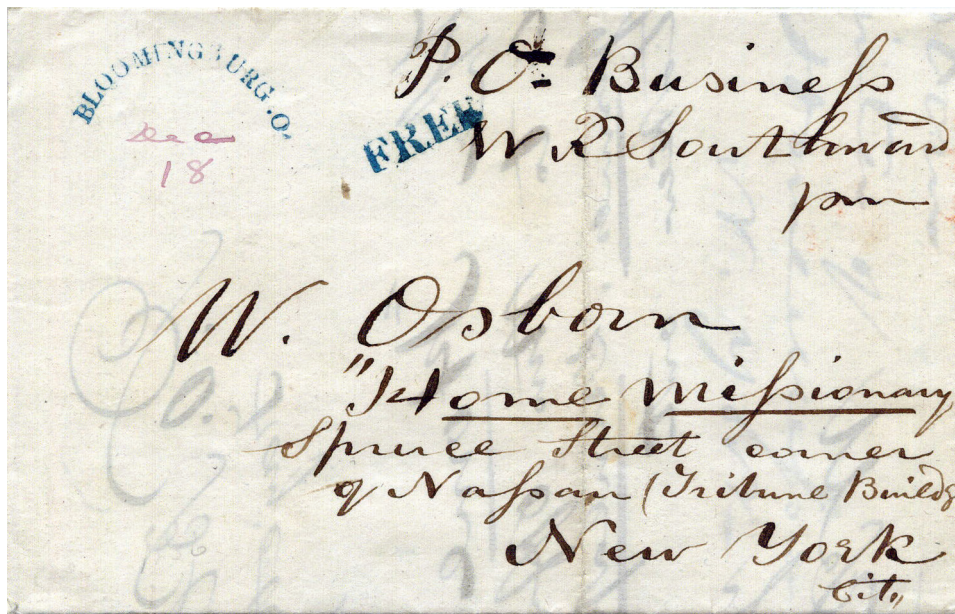 BLOOMINGBURG.O.
Dec
18
FREE
P. O. Business
W R Southward
pm
W. Osborn
"Home Missionary
Spruce Street corner
of Nassau (Tribune Buildg
New York
City